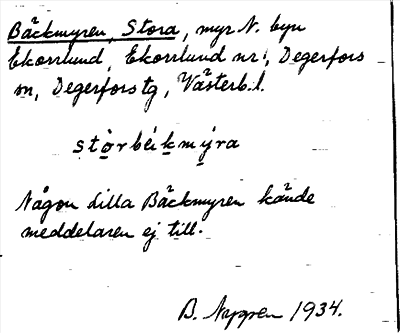 Bäckmyren, Stora, myr N. byn
Ekorrlund, Ekorrlund nr 1, Degerfors
sn, Degerfors tg, Västerb. l.
stòrbèkmýra
Någon Lilla Bäckmyren kände
meddelaren ej till.
B. Nygren 1934.